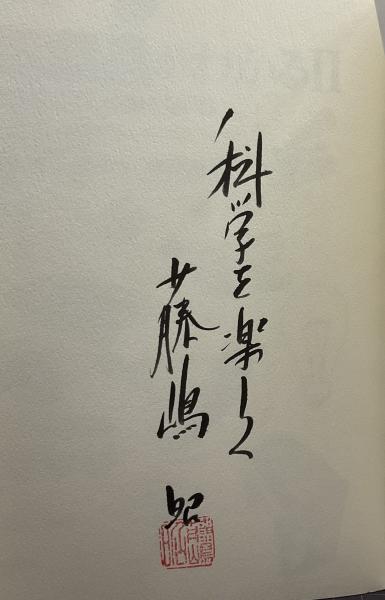 科学を楽しく
藤嶋 昭